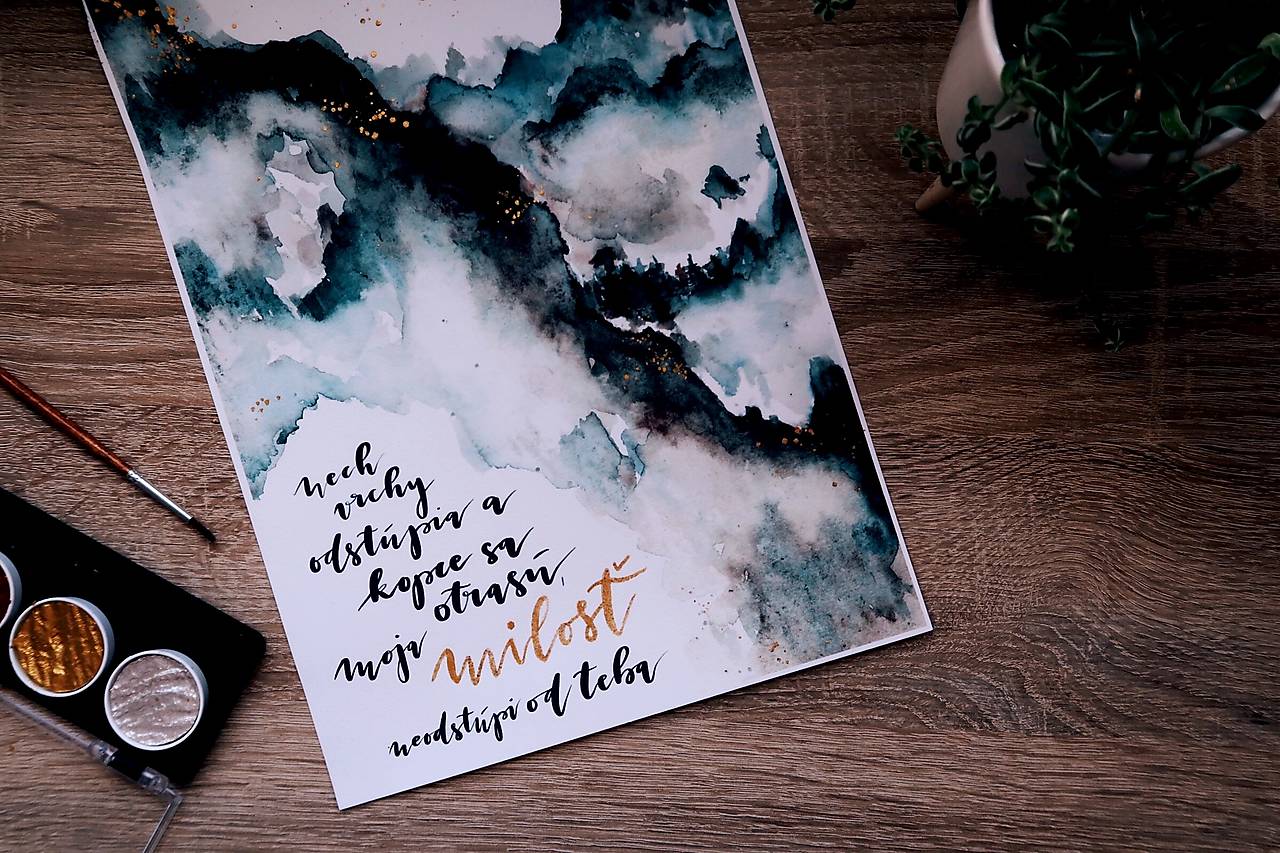 nech
vrchy
odstúpia a
kopce sa
otrasú,
moja milosť
neodstúpi od teba